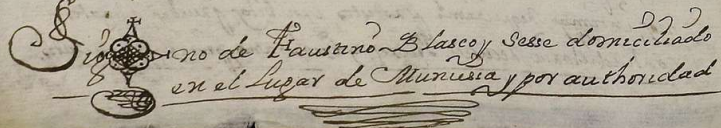 Sig no de Faustino Blasco y Sesse domiciliado
en el Lugar de Muniesa y por authoridad